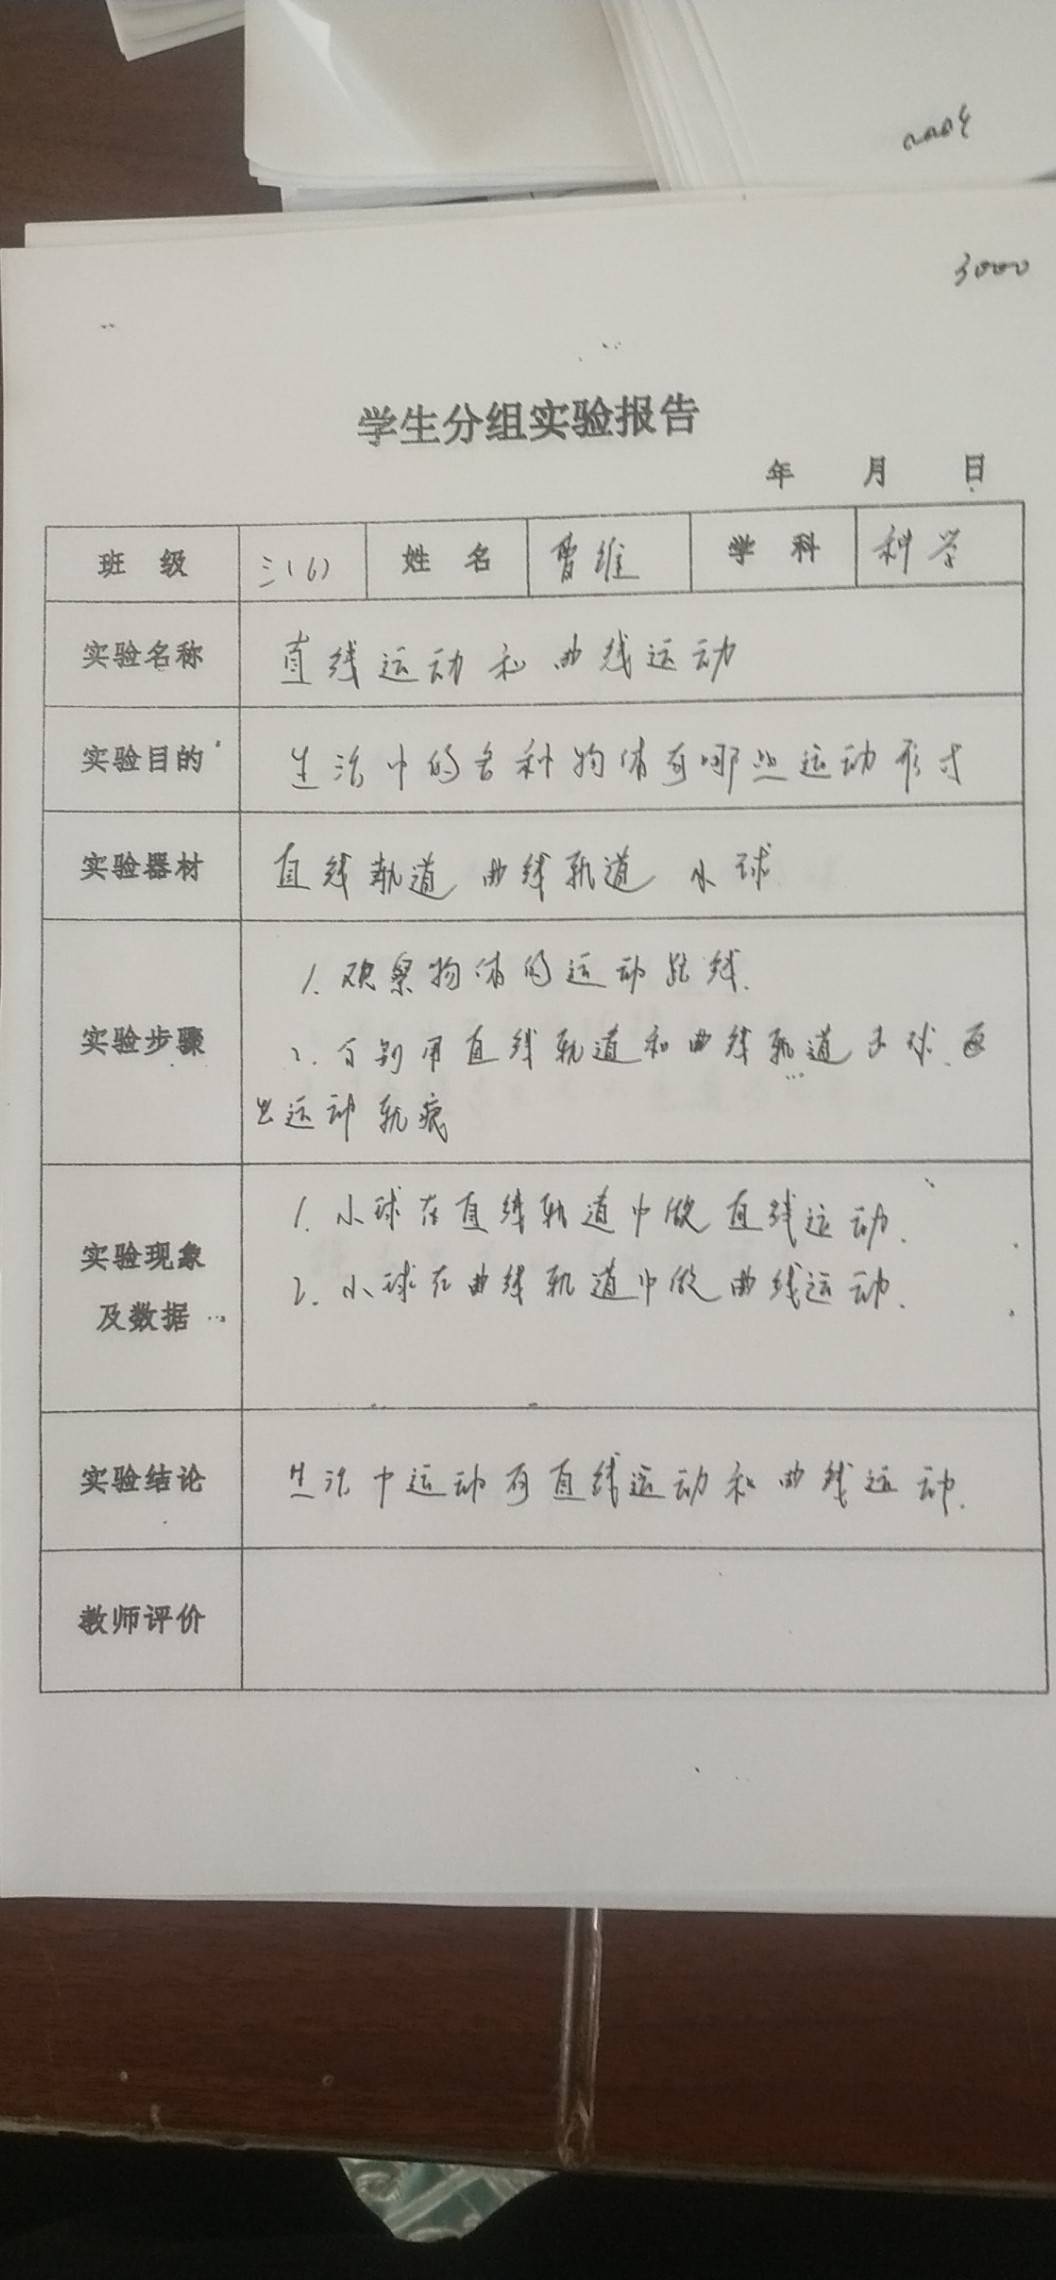 3000
学生分组实验报告
年 月 日
班 级 三(6) 姓 名 曹维 学 科 科学
实验名称 直线运动和曲线运动
实验目的 生活中的各种物体有哪些运动形式
实验器材 直线轨道 曲线轨道 小球
实验步骤
1. 观察物体的运动路线.
2. 分别用直线轨道和曲线轨道 球 画
出运动轨痕
实验现象
及数据
1. 小球在直线轨道中做直线运动.
2. 小球在曲线轨道中做曲线运动.
实验结论 生活中运动有直线运动和曲线运动.
教师评价